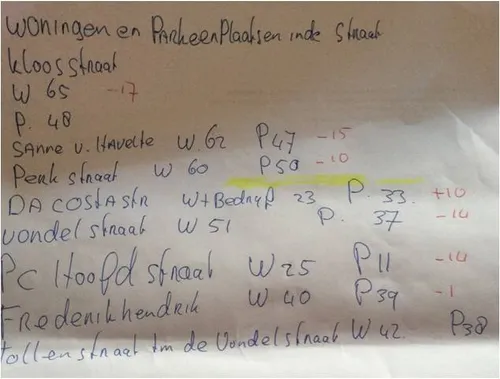 Woningen en Parkeerplaatsen inde straat
kloosstraat
W 65 -17
P. 48
SAnne v. HAvelte W. 62 P47 -15
Perk straat W 60 P50 -10
DA COStAStr W+Bedrijf 23 P. 33. +10
vondelstraat W 51 P. 37 -14
PC Hoofd straat W25 P11 -14
FRederikhendrik W 40 P39 -1
tollenstraat tm de Vondelstraat W 42 P38